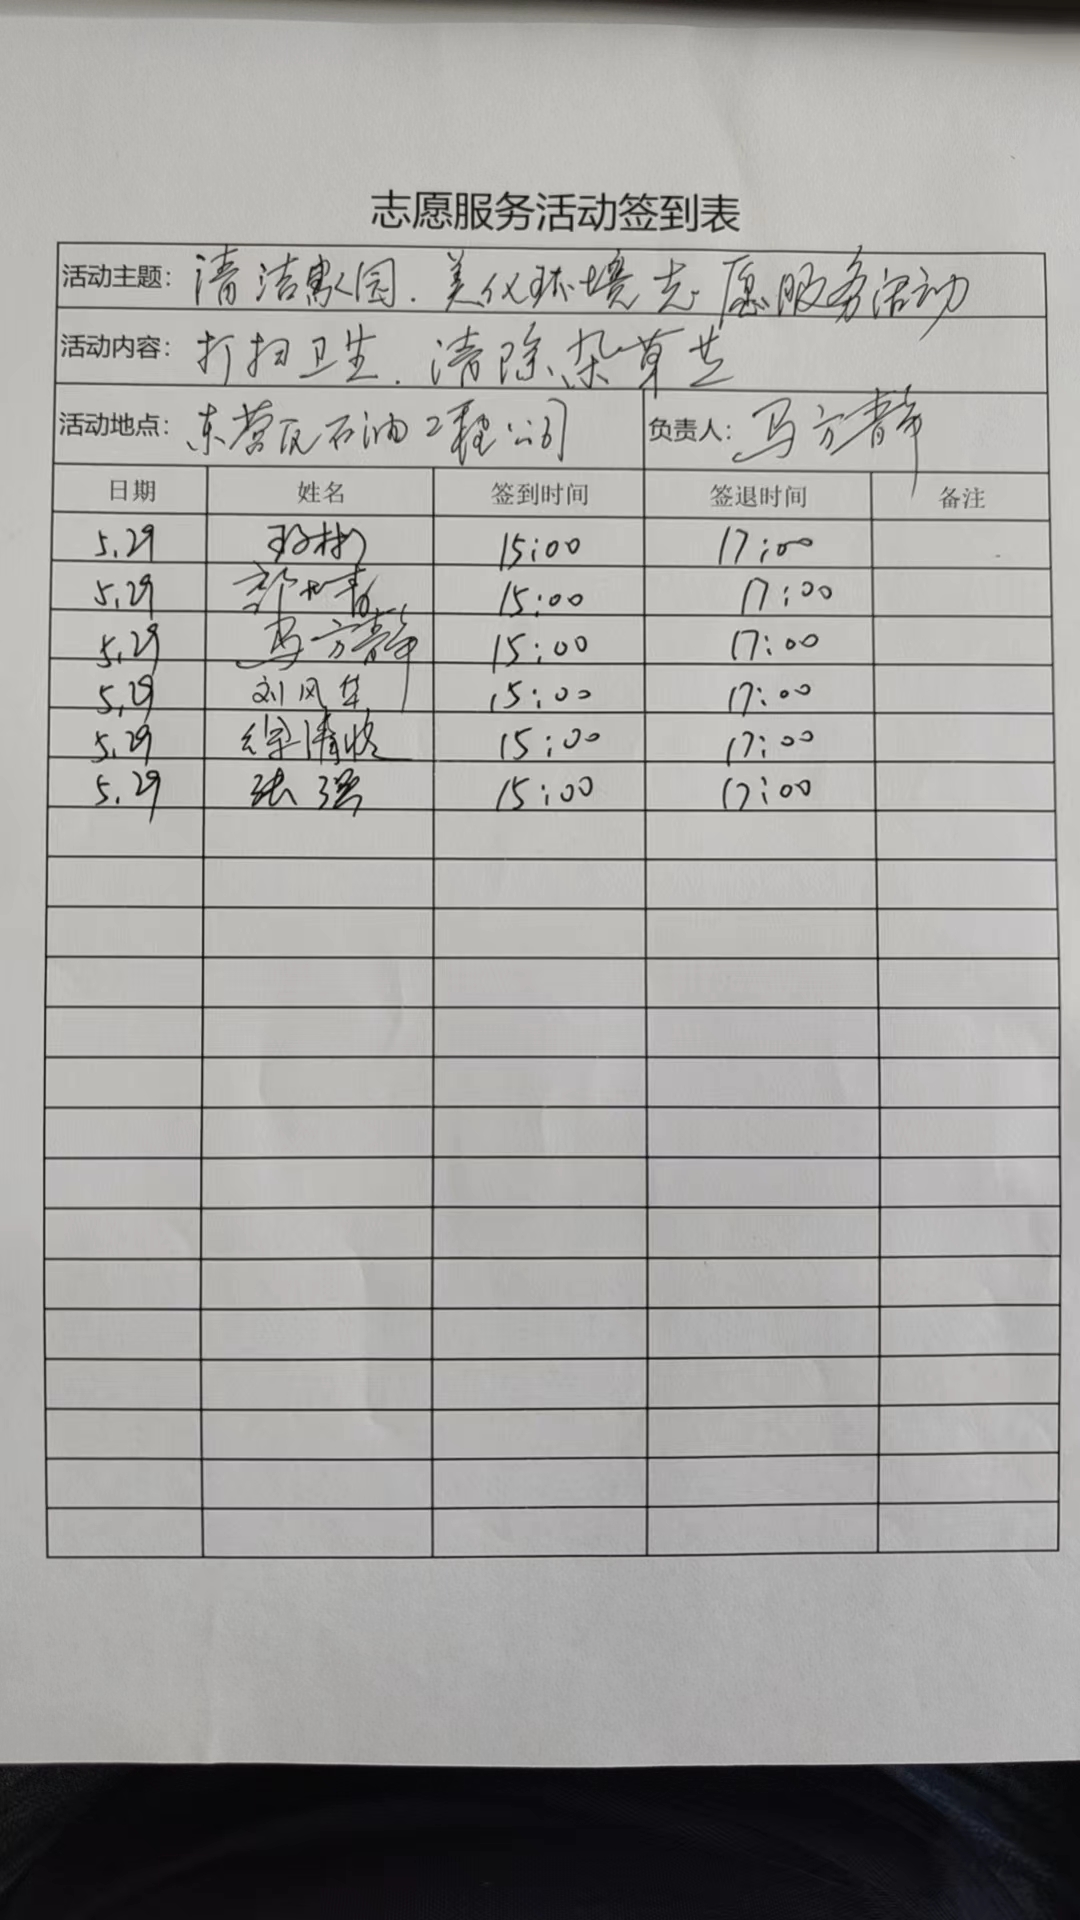 志愿服务活动签到表
活动主题: 清洁家园.美化环境志愿服务活动
活动内容: 打扫卫生.清除杂草
活动地点: 东营区石油工程公司 负责人: 马方静
日期 姓名 签到时间 签退时间 备注
5.29 15:00 17:00
5.29 15:00 17:00
5.29 马方静 15:00 17:00
5.29 刘风华 15:00 17:00
5.29 徐清 15:00 17:00
5.29 张强 15:00 17:00